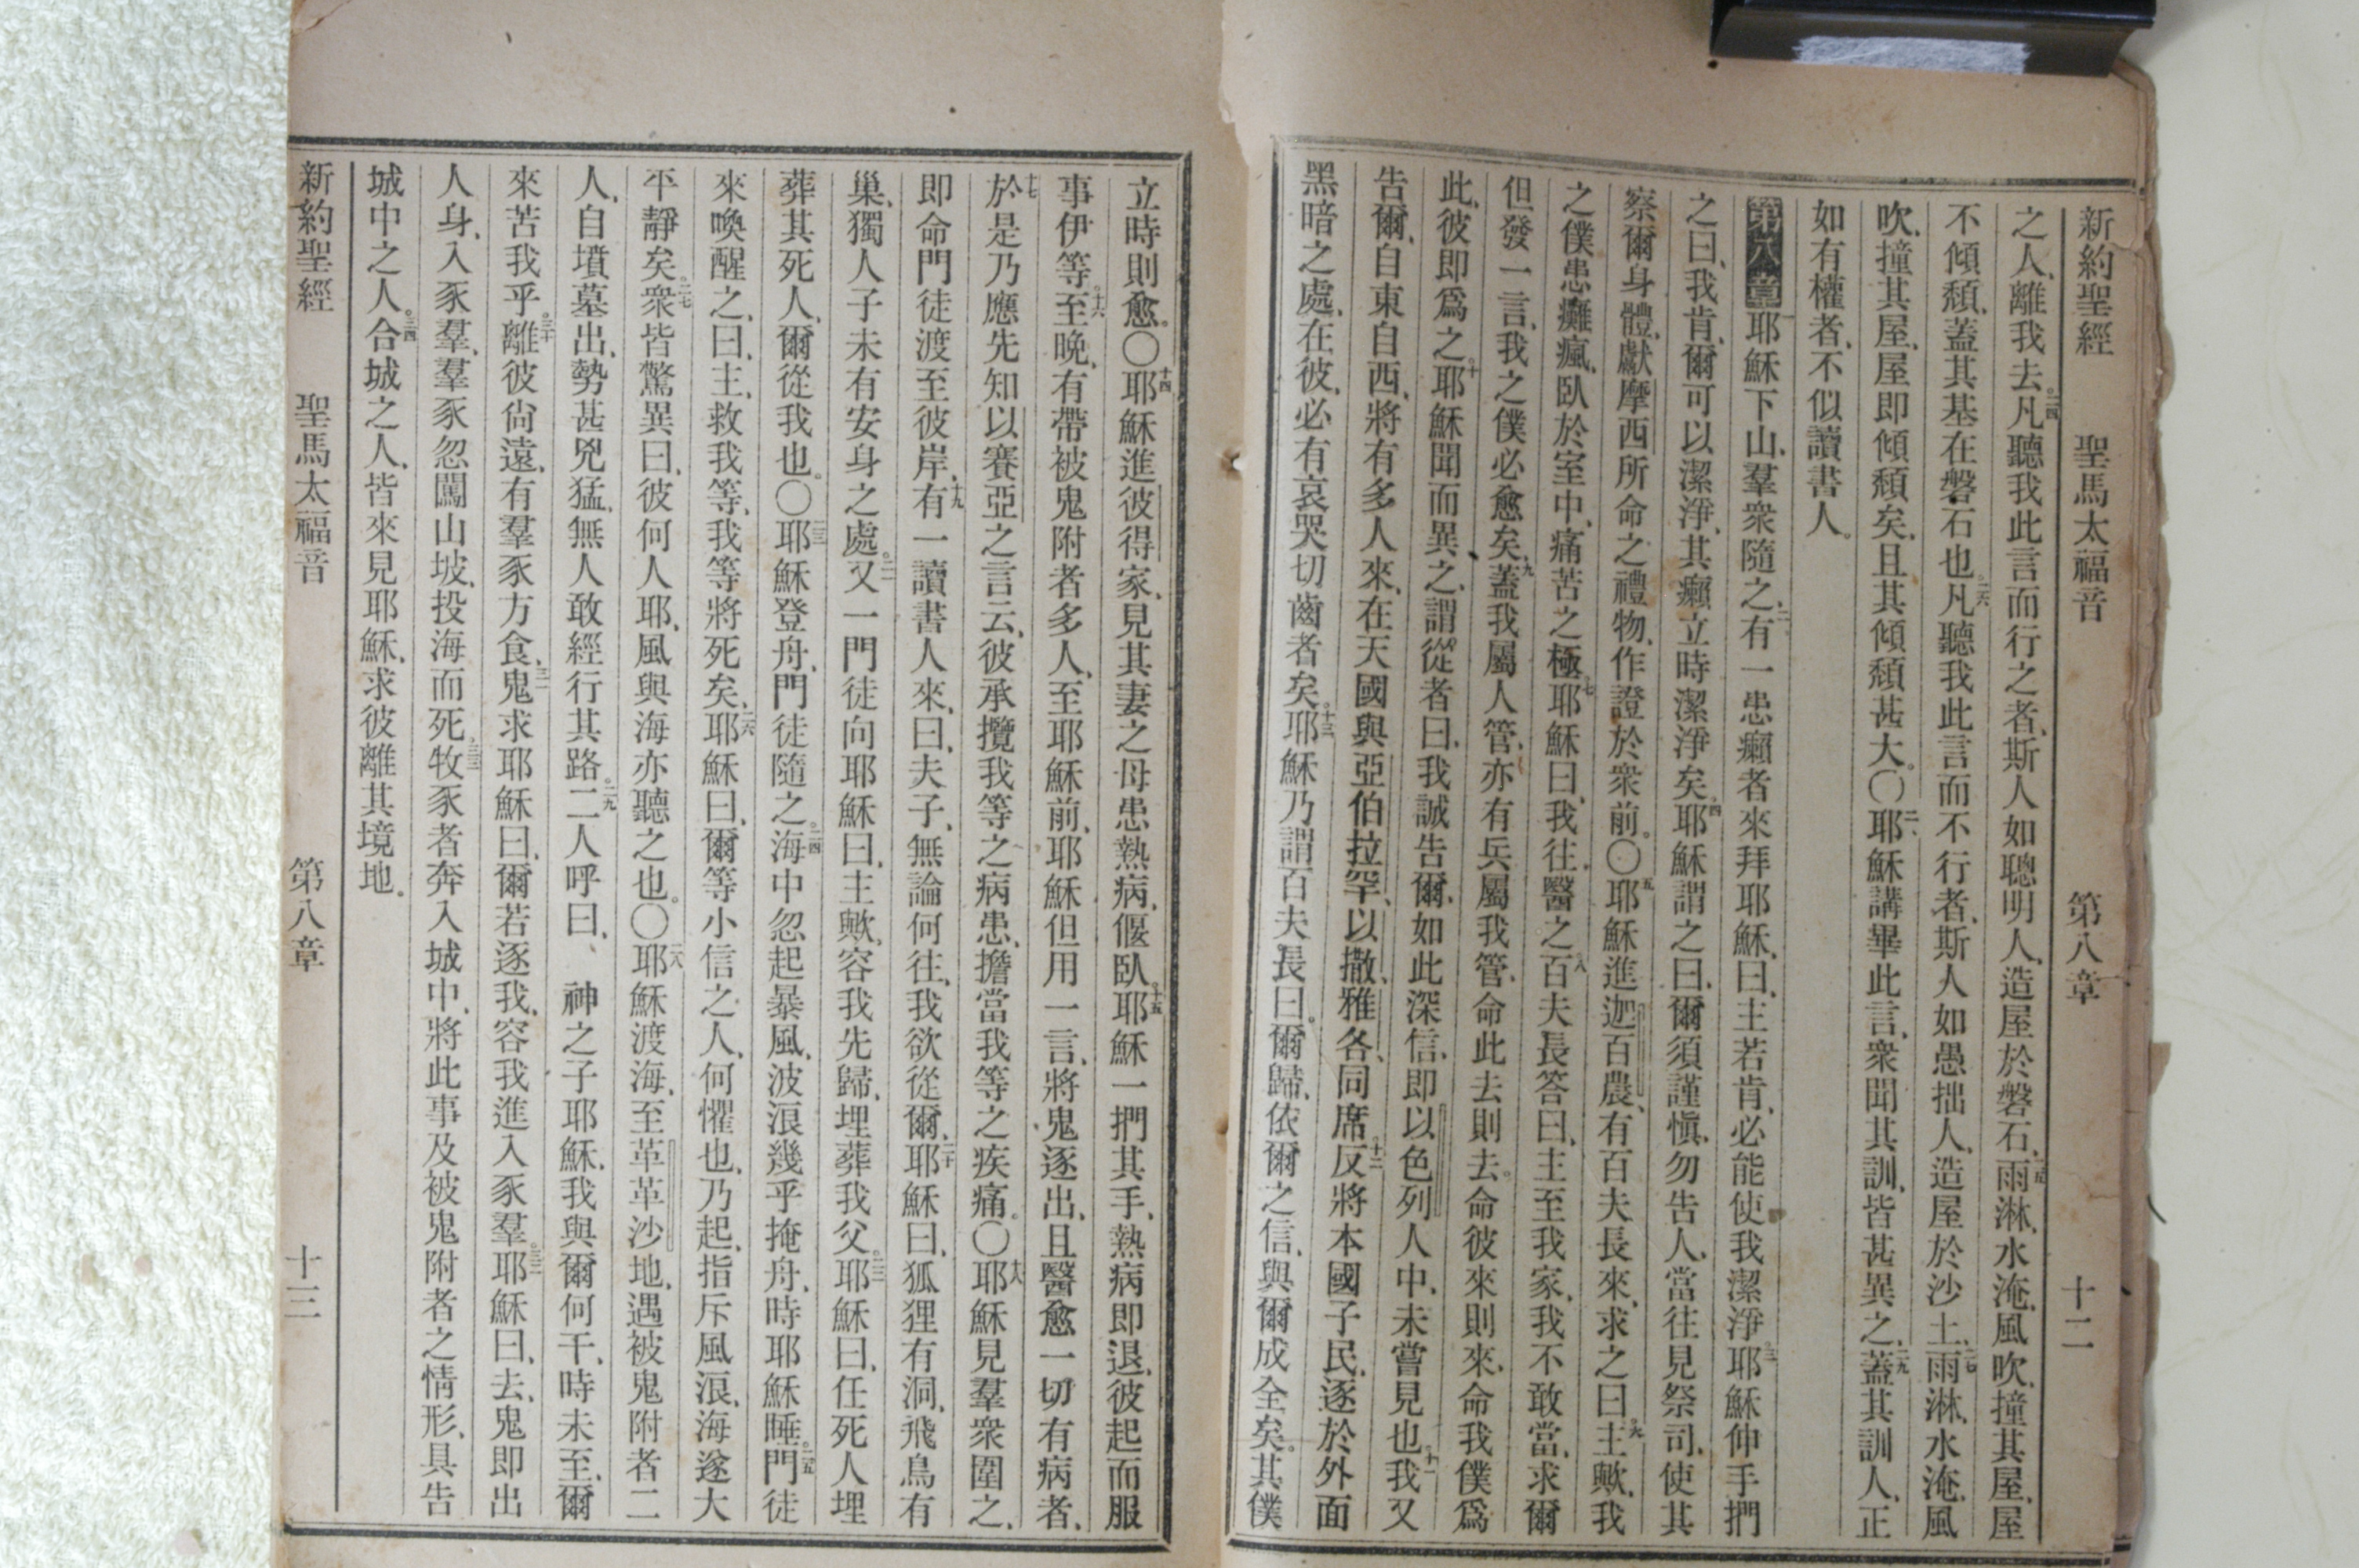 新約聖經 聖馬太福音 第八章 十二
之人、離我去。二四凡聽我此言而行之者、斯人如聰明人、造屋於磐石、二五雨淋、水淹、風吹、撞其屋、屋
不傾頹、蓋其基在磐石也。二六凡聽我此言而不行者、斯人如愚拙人、造屋於沙土、二七雨淋、水淹、風
吹、撞其屋、屋即傾頹矣、且其傾頹甚大。〇二八耶穌講畢此言、衆聞其訓、皆甚異之、二九蓋其訓人、正
如有權者、不似讀書人。
第八章 耶穌下山、羣衆隨之、二有一患癩者來拜耶穌、曰、主若肯、必能使我潔淨。三耶穌伸手捫
之曰、我肯、爾可以潔淨、其癩立時潔淨矣。四耶穌謂之曰、爾須謹愼、勿告人、當往見祭司、使其
察爾身體、獻摩西所命之禮物、作證於衆前。〇五耶穌進迦百農、有百夫長來、求之曰、六主歟、我
之僕患癱瘋、臥於室中、痛苦之極。七耶穌曰、我往醫之。八百夫長答曰、主至我家、我不敢當、求爾
但發一言、我之僕必愈矣、九蓋我屬人管、亦有兵屬我管、命此去則去。命彼來則來、命我僕爲
此、彼即爲之。十耶穌聞而異之、謂從者曰、我誠告爾、如此深信、即以色列人中、未嘗見也。十一我又
告爾、自東自西、將有多人來、在天國與亞伯拉罕、以撒、雅各、同席。十二反將本國子民、逐於外面
黑暗之處、在彼、必有哀哭切齒者矣。十三耶穌乃謂百夫長曰。爾歸、依爾之信、與爾成全矣。其僕
立時則愈。〇十四耶穌進彼得家、見其妻之母患熱病、偃臥。十五耶穌一捫其手、熱病即退、彼起而服
事伊等。十六至晚、有帶被鬼附者多人、至耶穌前、耶穌但用一言、將鬼逐出、且醫愈一切有病者、
十七於是乃應先知以賽亞之言云、彼承攬我等之病患、擔當我等之疾痛。〇十八耶穌見羣衆圍之、
即命門徒渡至彼岸、十九有一讀書人來、曰、夫子、無論何往、我欲從爾、二十耶穌曰、狐狸有洞、飛鳥有
巢、獨人子未有安身之處。二一又一門徒向耶穌曰、主歟、容我先歸、埋葬我父。二二耶穌曰、任死人埋
葬其死人、爾從我也。〇二三耶穌登舟、門徒隨之。二四海中忽起暴風、波浪幾乎掩舟、時耶穌睡。二五門徒
來喚醒之、曰、主、救我等、我等將死矣、二六耶穌曰、爾等小信之人、何懼也、乃起、指斥風浪、海遂大
平靜矣。二七衆皆驚異曰、彼何人耶、風與海亦聽之也。〇二八耶穌渡海、至革革沙地、遇被鬼附者二
人、自墳墓出、勢甚兇猛、無人敢經行其路。二九二人呼曰、神之子耶穌、我與爾何干、時未至、爾
來苦我乎。三十離彼尙遠、有羣豕方食、三一鬼求耶穌曰、爾若逐我、容我進入豕羣。三二耶穌曰、去、鬼即出
人身、入豕羣、羣豕忽闖山坡、投海而死、三三牧豕者奔入城中、將此事及被鬼附者之情形、具告
城中之人。三四合城之人、皆來見耶穌、求彼離其境地。
新約聖經 聖馬太福音 第八章 十三